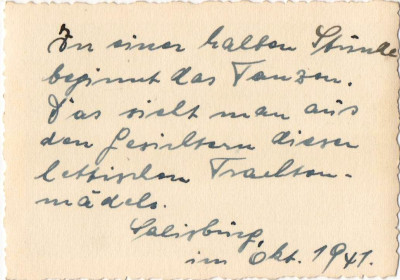 In einer halben Stunde
beginnt das Tanzen.
Das sieht man aus
den Gesichtern dieser
lettischen Trachten-
mädels.
Salisburg,
im Okt. 1941.